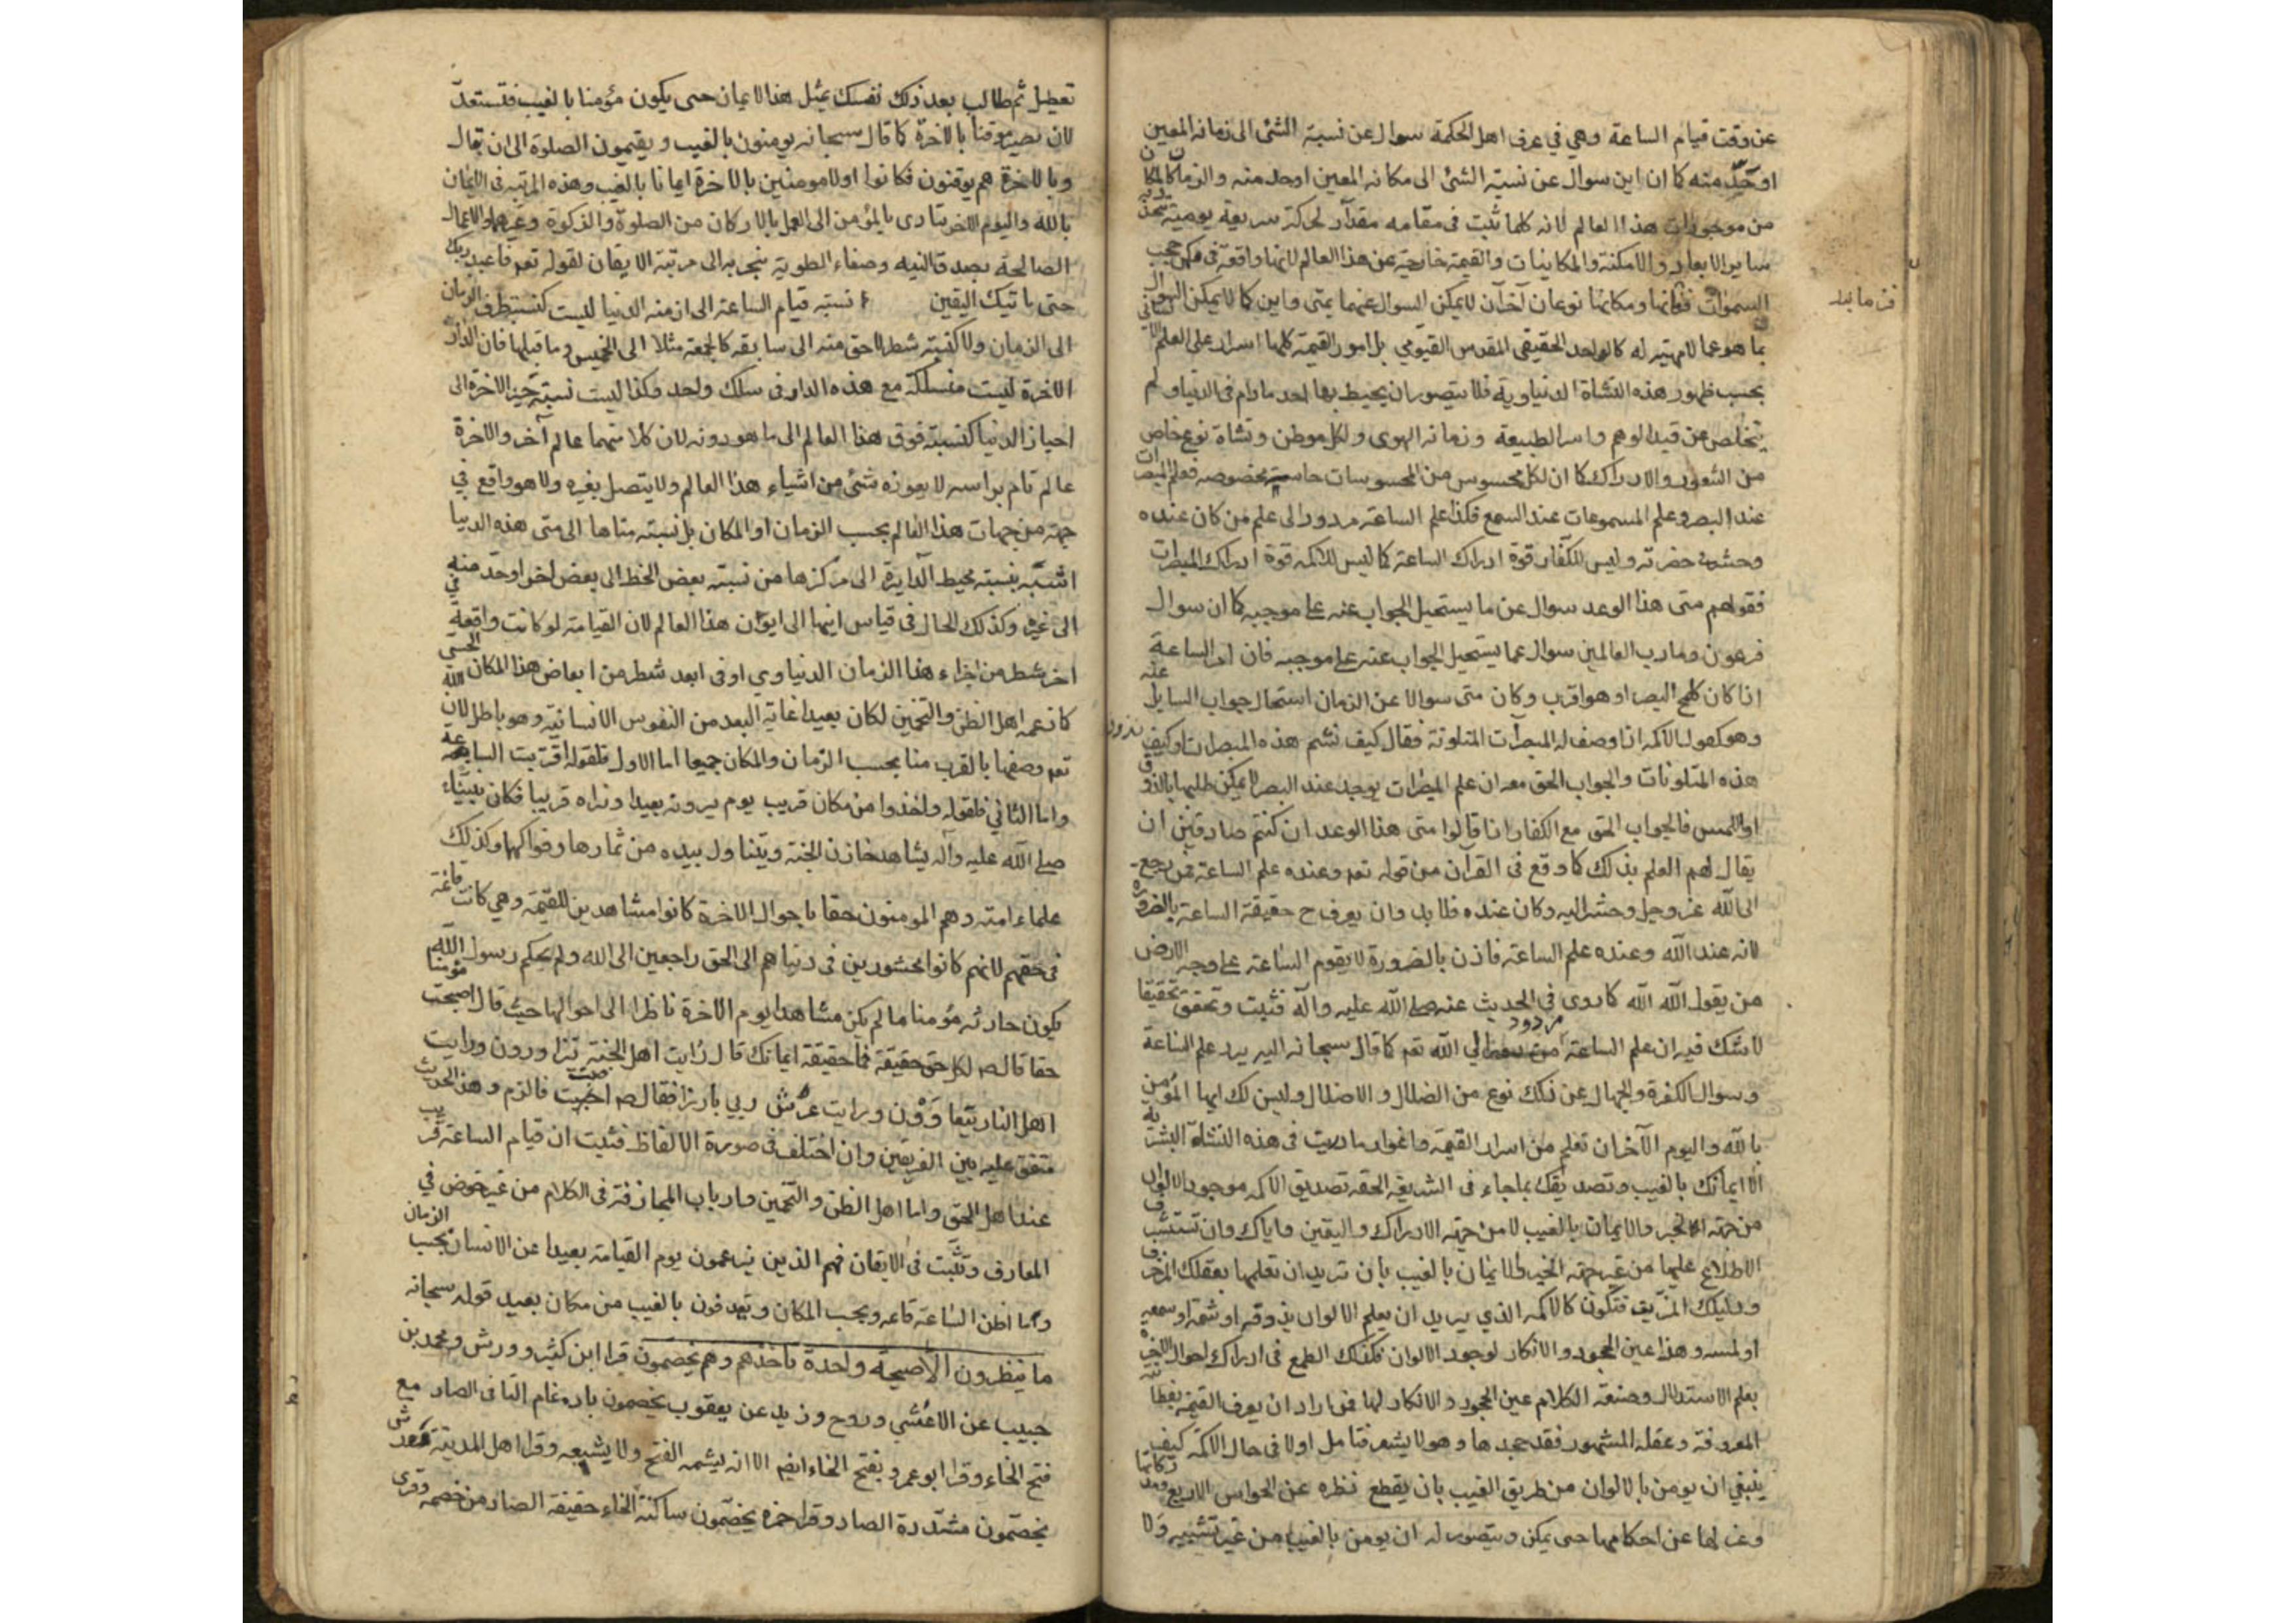 عن وقت قيام الساعة وهي في عرف اهل الحكمة سوال عن نسبة الشئ الى زمانه المعين
او حدّ منه كما ان اين سوال عن نسبة الشئ الى مكانه المعين او حد منه والزمان كالمكان
من موجودات هذا العالم لانه كلما ثبت في مقامه مقدار لحركة سريعة يومية
ساير الابعاد والامكنة والمكانيات والقيمة خارجة عن هذا العالم لانها واقعة في مكمن حجب
السموات فزمانها ومكانها نوعان آخران لا يمكن السوال عنهما بمتى واين كما لا يمكن السوال
بما هو عما لا مهية له كالواحد الحقيقي المقدس القيومي بل امور القيمة كلها اسرار على العلم
بحسب ظهور هذه النشاة الدنياوية فلا يتصور ان يحيط بها احد مادام في الدنيا ولم
يتخلص عن قيد الوهم واسر الطبيعة وزمانه الهوى ولكل موطن ونشاة نوع خاص
من الشعور والادراك كما ان لكل محسوس من المحسوسات حاسة مخصوصه فعلم المبصرات
عند البصر وعلم المسموعات عند السمع فكذا علم الساعة مردود الى علم من كان عنده
وحشر حضرته وليس للكفار قوة ادراك الساعة كما ليس للاكمه قوة ادراك المبصرات
فقولهم متى هذا الوعد سوال عن ما يستحيل الجواب عنه على موجبه كما ان سوال
فرعون وما رب العالمين سوال عما يستحيل الجواب عنه على موجبه فان امر الساعة
اذا كان كلمح البصر او هو اقرب وكان متى سوالا عن الزمان استحال جواب السايل عنه
وهو كقول الاكمه اذا وصف له المبصرات المتلونة فقال كيف نشم هذه المبصرات وكيف نذوق
هذه المتلونات والجواب الحق معه ان علم المبصرات يوجد عند البصر لا يمكن طلبها بالذوق
او اللمس فالجواب الحق مع الكفار اذا قالوا متى هذا الوعد ان كنتم صادقين ان
يقال لهم العلم بذلك كما وقع في القرآن من قوله تعه وعنده علم الساعة فمن رجع
الى الله عز وجل وحشر اليه وكان عنده فلا بد وان يعرف ح حقيقة الساعة بالضرورة
لانه عند الله وعنده علم الساعة فاذن بالضرورة لا يقوم الساعة على وجه الارض
من يقول الله الله كما روى في الحديث عنه صلى الله عليه وآله فثبت وتحقق تحقيقا
لا شك فيه ان علم الساعة مردود الي الله تعه كما قال سبحانه اليه يرد علم الساعة
وسوال الكفرة والجهال عن ذلك نوع من الضلال والاضلال وليس لك ايها المؤمن
بالله واليوم الآخر ان تعلم من اسرار القيمة واغوارها مادمت في هذه النشاة البشرية
الا ايمانك بالغيب وتصديقك بما جاء في الشريعة الحقه تصديق الاكمه بوجود الالوان
من جهة الخبر والايمان بالغيب لا من جهة الادراك واليقين واياك وان تستشرف
الاطلاع عليها من غير جهة الخبر والايمان بالغيب بان تريد ان تعلمها بعقلك المزخرف
ودليلك المزيف فتكون كالاكمه الذي يريد ان يعلم الالوان بذوقه او شمه او سمعه
او لمسه وهذا عين الجحود والانكار لوجود الالوان فكذلك الطمع في ادراك احوال الآخرة
بعلم الاستدلال وصنعة الكلام عين الجحود والانكار لها فمن اراد ان يعرف القيمة بفطانته
المعروفة وعقله المشهور فقد جحدها وهو لا يشعر فتامل اولا في حال الاكمه كيف
ينبغي ان يومن بالالوان من طريق الغيب بان يقطع نظره عن الحواس الاربع ومدركاتها
وعزلها عن احكامها حتى يمكن ويتصور له ان يومن بالغيب من غير تشبيه ولا
تعطيل ثم طالب بعد ذلك نفسك بمثل هذا الايمان حتى يكون مؤمنا بالغيب فتستعد
لان تصير موقنا بالآخرة كما قال سبحانه يومنون بالغيب ويقيمون الصلوة الى ان يقال
وبالاخرة هم يوقنون فكانوا اولا مومنين بالاخرة ايمانا بالغيب وهذه المرتبه في الايمان
بالله واليوم الآخر يتادى بالمؤمن الى العمل بالاركان من الصلوة والزكوة وغيرهما والاعمال
الصالحة بصدق النيه وصفاء الطوية ينجر به الى مرتبة الايقان لقوله تعه فاعبد ربك
حتى ياتيك اليقين نسبة قيام الساعة الى ازمنة الدنيا ليست كنسبة ظرف الزمان
الى الزمان ولا كنسبة شطر لاحق منه الى سابقه كالجمعة مثلا الى الخميس وما قبلها فان الدار
الاخرة ليست منسلكة مع هذه الدار في سلك واحد وكذا ليست نسبة حيز الاخرة الى
احياز الدنيا كنسبة فوق هذا العالم الى ما هو دونه لان كلا منهما عالم آخر والاخرة
عالم تام براسه لا يعوزه شئ من اشياء هذا العالم ولا يتصل بغيره ولا هو واقع في
جهة من جهات هذا العالم بحسب الزمان او المكان بل نسبة متاها الى متى هذه الدنيا
اشبه بنسبة محيط الدايرة الى مركزها من نسبة بعض الخط الى بعض اخر او حد منه
الى غيره وكذلك الحال في قياس اينها الى ايون هذا العالم لان القيامة لو كانت واقعة في
اخر شطر من اجزاء هذا الزمان الدنياوي او في ابعد شطر من ابعاض هذا المكان الحسي
كما زعمه اهل الظن والتخمين لكان بعيدا غاية البعد من النفوس الانسانية وهو باطل لان الله
تعه وصفها بالقرب منا بحسب الزمان والمكان جميعا اما الاول فلقوله اقتربت الساعة
واما الثاني فلقوله واخذوا من مكان قريب يوم يرونه بعيدا ونراه قريبا فكان نبينا
صلى الله عليه وآله يشاهد خازن الجنة ويتناول بيده من ثمارها وفواكهها وكذلك
علماء امته وهم المومنون حقا باحوال الاخرة كانوا مشاهدين للقيمة وهي كانت قائمة
في حقهم لانهم كانوا محشورين في دنياهم الى الحق راجعين الى الله ولم يحكم رسول الله
يكون حارثه مؤمنا ما لم يكن مشاهدا يوم الآخرة ناظرا الى احوالها حيث قال اصبحت مؤمنا
حقا قال ص لكل حق حقيقة فما حقيقة ايمانك قال رايت اهل الجنة يتزاورون ورايت
اهل النار يتعاوون ورايت عرش ربي بارزا فقال ص اصبت فالزم وهذا الحديث
متفق عليه بين الفريقين وان اختلف في صورة الالفاظ فثبت ان قيام الساعة قريب
عند اهل الحق واما اهل الظن والتخمين وارباب المجازفة في الكلام من غير خوض في
المعارف وتثبت في الايقان فهم الذين يزعمون يوم القيامة بعيدا عن الانسان بحسب الزمان
وما اظن الساعة قائمه وبحسب المكان ويقذفون بالغيب من مكان بعيد قوله سبحانه
ما ينظرون الا صيحة واحدة تاخذهم وهم يخصمون قرا ابن كثير وورش ومحمد بن
حبيب عن الاعشي وروح وزيد عن يعقوب يخصمون بادغام التا في الصاد مع
فتح الخاء وقرا ابو عمرو بفتح الخاء ايضا الا انه يشمه الفتح ولا يشبعه وقرا اهل المدينة
يخصمون مشددة الصاد وقرا حمزه يخصمون ساكنة الخاء خفيفة الصاد من خصمه وقرى